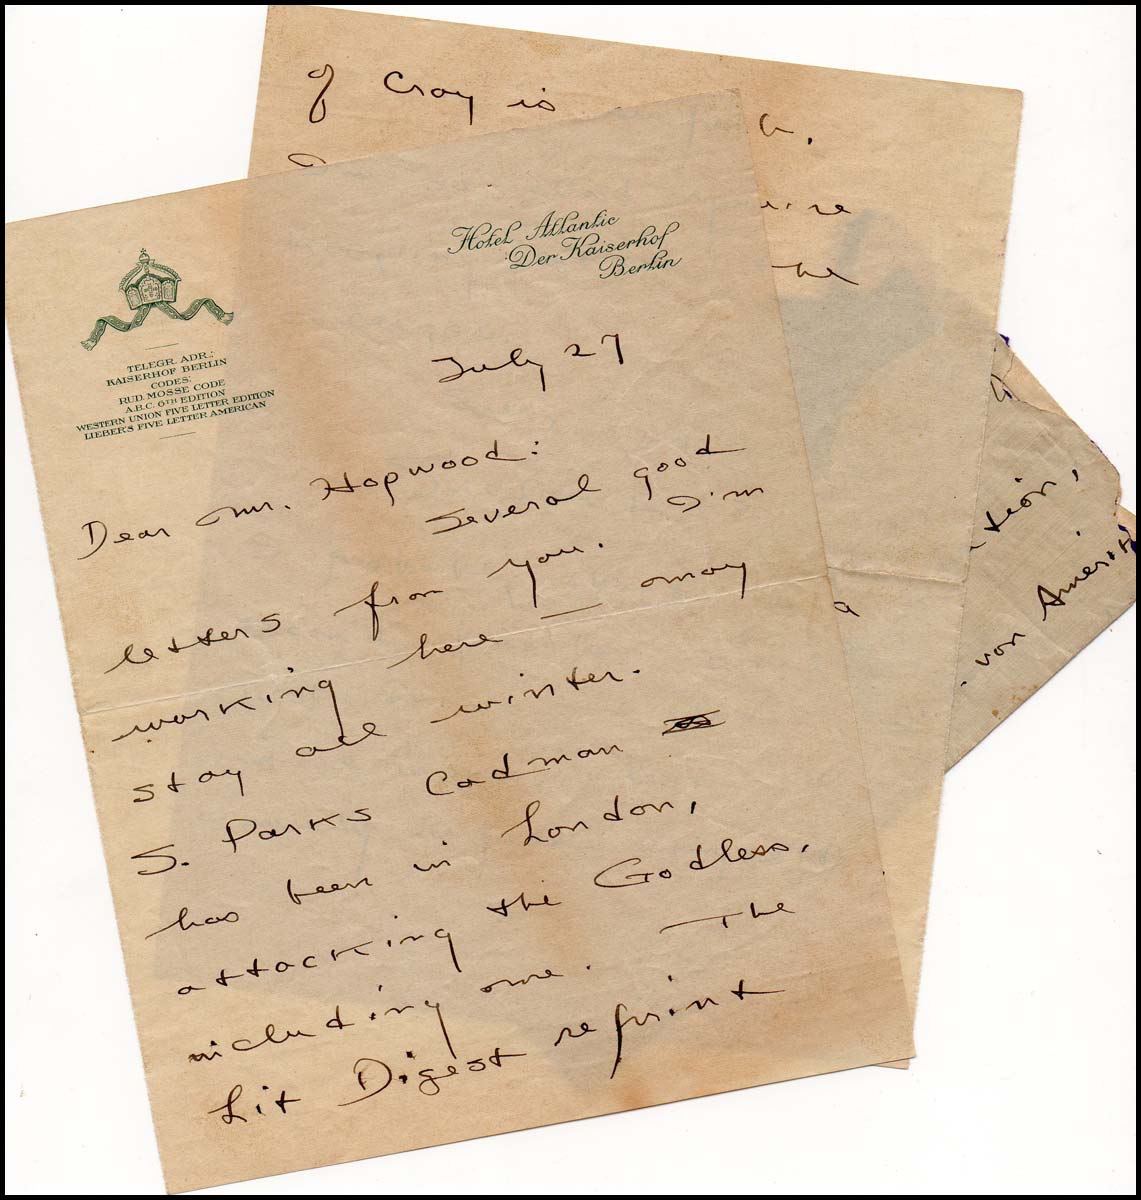 of Croy is
Hotel Atlantic
Der Kaiserhof
Berlin
TELEGR. ADR.:
KAISERHOF BERLIN
CODES:
RUD. MOSSE CODE
A.B.C. 6TH EDITION
WESTERN UNION FIVE LETTER EDITION
LIEBER'S FIVE LETTER AMERICAN
July 27
Dear Mr. Hopwood:
Several good
letters from you. I'm
working here — may
stay all winter.
S. Parks Cadman
has been in London,
attacking the Godless,
including me. The
Lit Digest reprint
the
a
tion,
von Ameri